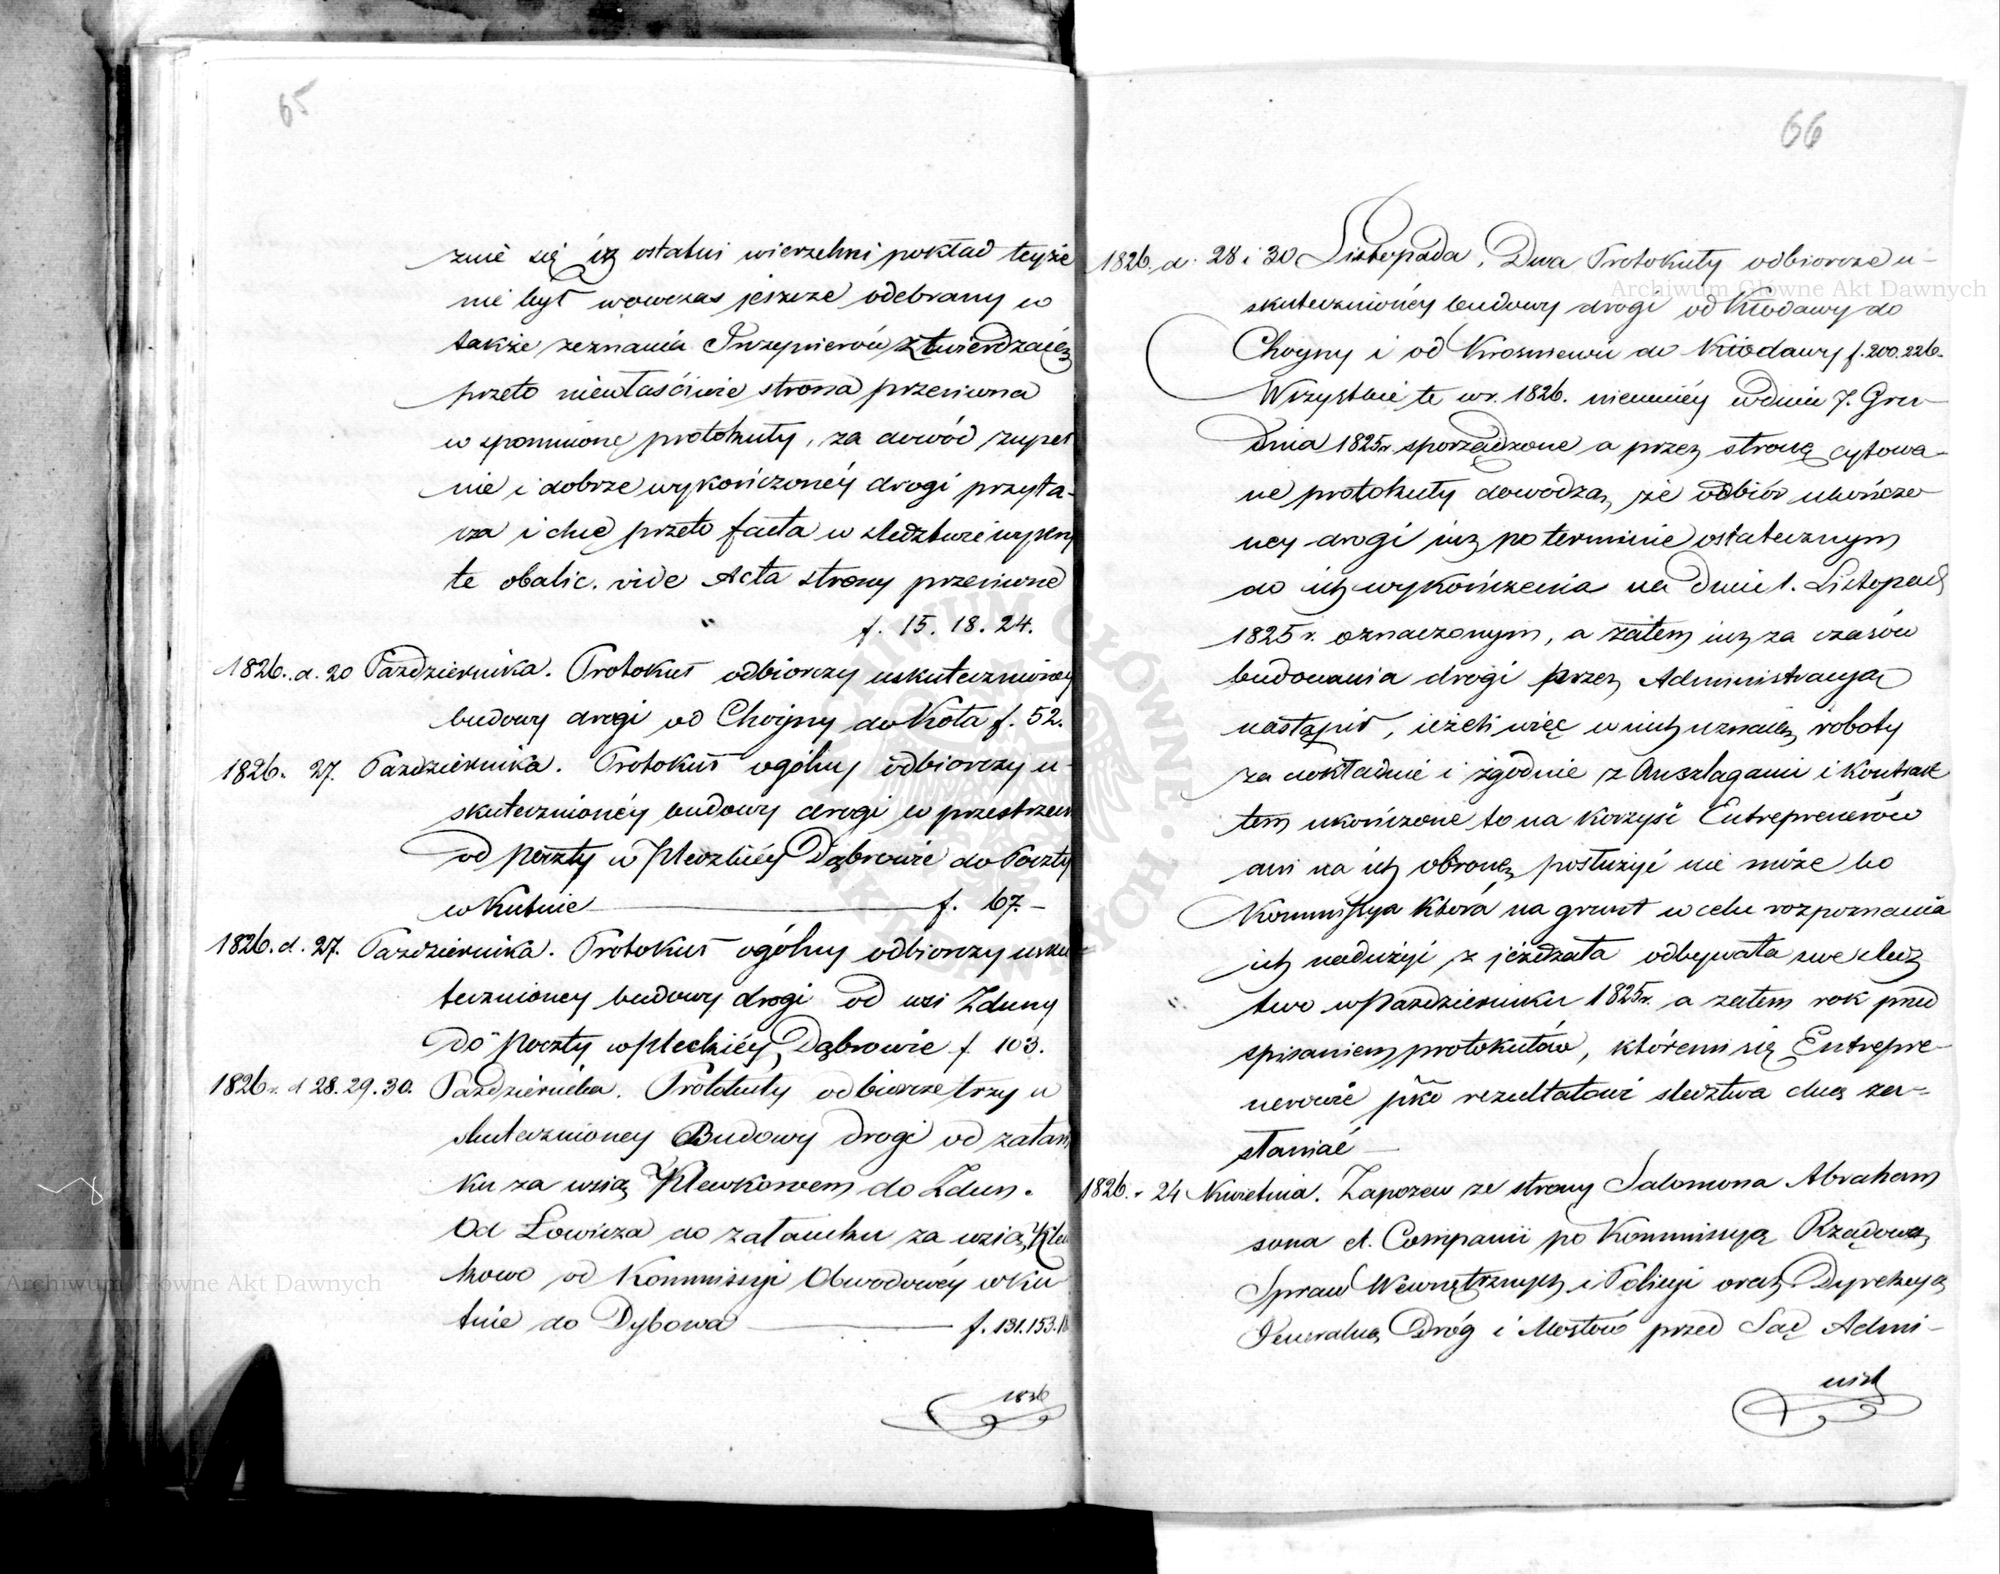 65
znie się iż ostatni wierzchni pokład teyże
nie był wowczas jeszcze odebrany w
także zeznania Inżynierów stwierdzaią
przeto niewłaściwie strona przeciwna
wspomnione protokuły, za dowód zupeł
nie i dobrze wykończonéy drogi przyta-
cza i chce przeto facta w śledztwie wykry
te obalic. vide Acta strony przeciwne
f. 15. 18. 24.
1826. d. 20 Października. Protokuł odbiorczy uskutecznioney
budowy drogi od Choyny do Koła f. 52.
1826. 27. Października. Protokuł ogólny odbiorczy u-
skutecznionéy budowy drogi w przestrzeni
od Poczty w Pleckiéy Dąbrowie do Poczty
w Kutnie f. 67. –
1826. d. 27. Października. Protokuł ogólny odbiorczy usku-
tecznioney budowy drogi od wsi Zduny
do Poczty w Pleckiéy Dąbrowie f. 103.
1826 r. d 28. 29. 30. Października. Protokuły odbiorcze trzy u
skutecznioney Budowy drogi od załam
ku za wsią Plewkowem do Zdun.
Od Łowicza do załamku za wsią
kowo od Kommissyi Obwodowéy w Ku
tnie do Dybowa f. 131. 153.
1826
66
1826. d. 28 i 30 Listopada. Dwa Protokuły odbiorcze u-
skutecznionéy budowy drogi od Kłodawy do
Choyny i od Krosniewic do Kłodawy f. 200. 226.
Wszystkie te w r. 1826. niemniéy w dniu 7. Gru-
dnia 1825 r. sporządzone a przez stronę cytowa-
ne protokuły dowodzą, że odbiór ukończo
ney drogi iuż po terminie ostatecznym
do ich wykończenia na dniu 1. Listopad
1825 r. oznaczonym, a zatem iuż za czasów
budowania drogi przez Administracyą
nastąpił, ieżeli więc w nich uznaią roboty
za dokładnie i zgodnie z Anszlagami i Kontrak
tem ukończone to na korzyść Entreprenerów
ani na ich obronę posłużyć nie może bo
Kommissya która na grunt w celu rozpoznania
ich nadużyć zjeżdżała odbywała swe śledz
two w Październiku 1825 r. a zatem rok przed
spisaniem protokułów, któremi się Entrepre-
nerowie rezultatowi śledztwa chcą za-
słaniać –
1826. r 24 Kwietnia. Zapozew ze strony Salomona Abraham
sona et. Companii po Kommissyą Rządową
Spraw Wewnętrznych i Policyi oraz Dyrekcyą
Jeneralną Dróg i Mostów przed Sąd Admi-
nist
Archiwum Główne Akt Dawnych
Archiwum Główne Akt Dawnych